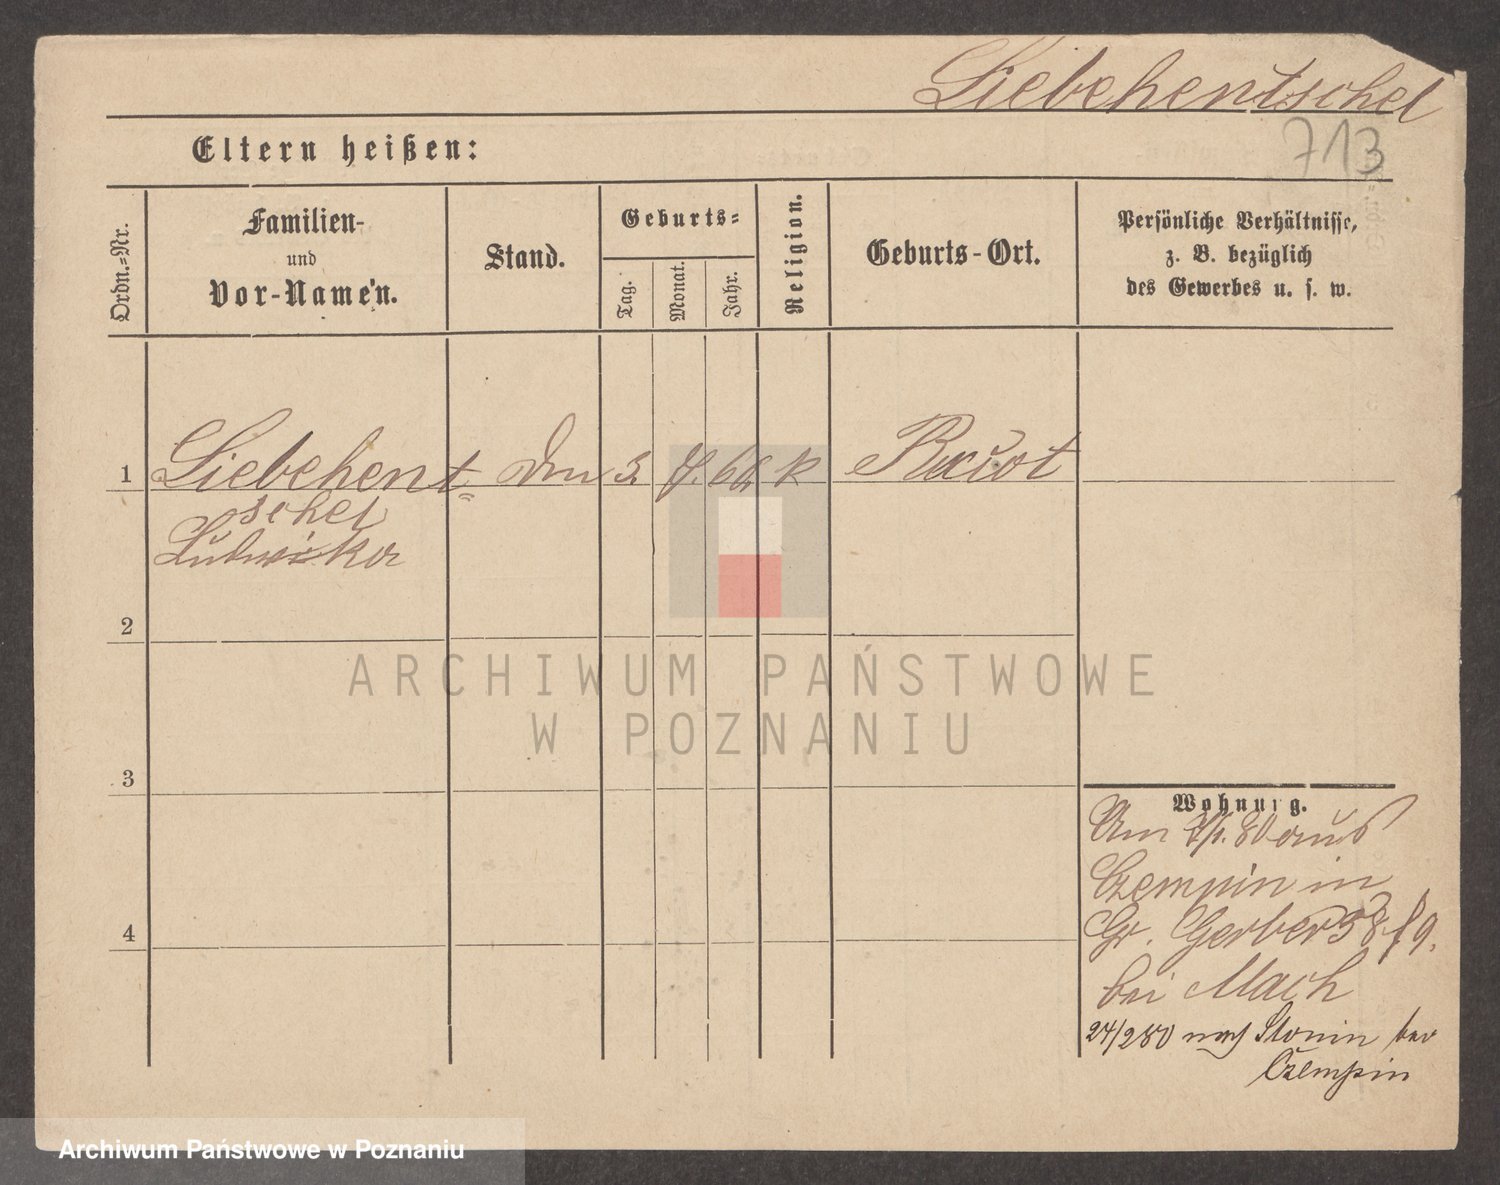 Liebehentschel
713
Eltern heißen:
Ordn.=Nr.
Familien-
und
Vor-Namen.
Stand.
Geburts=
Tag.
Monat.
Jahr.
Religion.
Geburts-Ort.
Persönliche Verhältnisse,
z. B. bezüglich
des Gewerbes u. s. w.
1
Liebehent=
schel
Ludwika
3.
k
2
3
4
Wohnung.
Am 80 aus
Czempin in
Gr. Gerber
bei Mach
24/2 80 nach Slonin bei
Czempin
ARCHIWUM PAŃSTWOWE
W POZNANIU
Archiwum Państwowe w Poznaniu